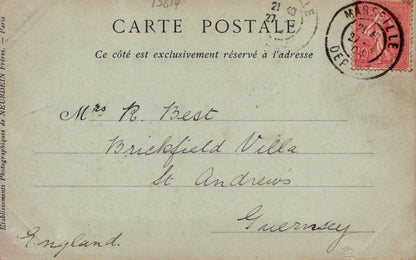 15819
CARTE POSTALE
Ce côté est exclusivement réservé à l'adresse
21
27
MARSEILLE
DEP
Mrs R. Best
Brickfield Villa
St Andrews
Guernsey
England.
Etablissements Photographiques de NEURDEIN Frères. — Paris